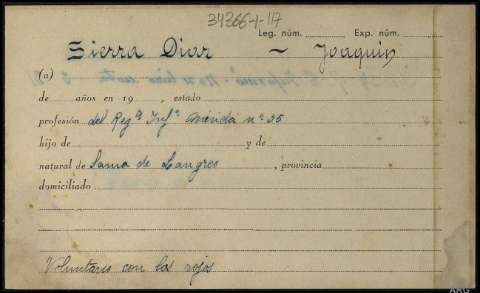 34266-1-117
Leg. núm. Exp. núm.
Sierra Diaz ~ Joaquin
(a)
de años en 19 , estado
profesión del Regº Infª Merida nº 35
hijo de y de
natural de Sama de Langreo , provincia
domiciliado
Voluntario con los rojos